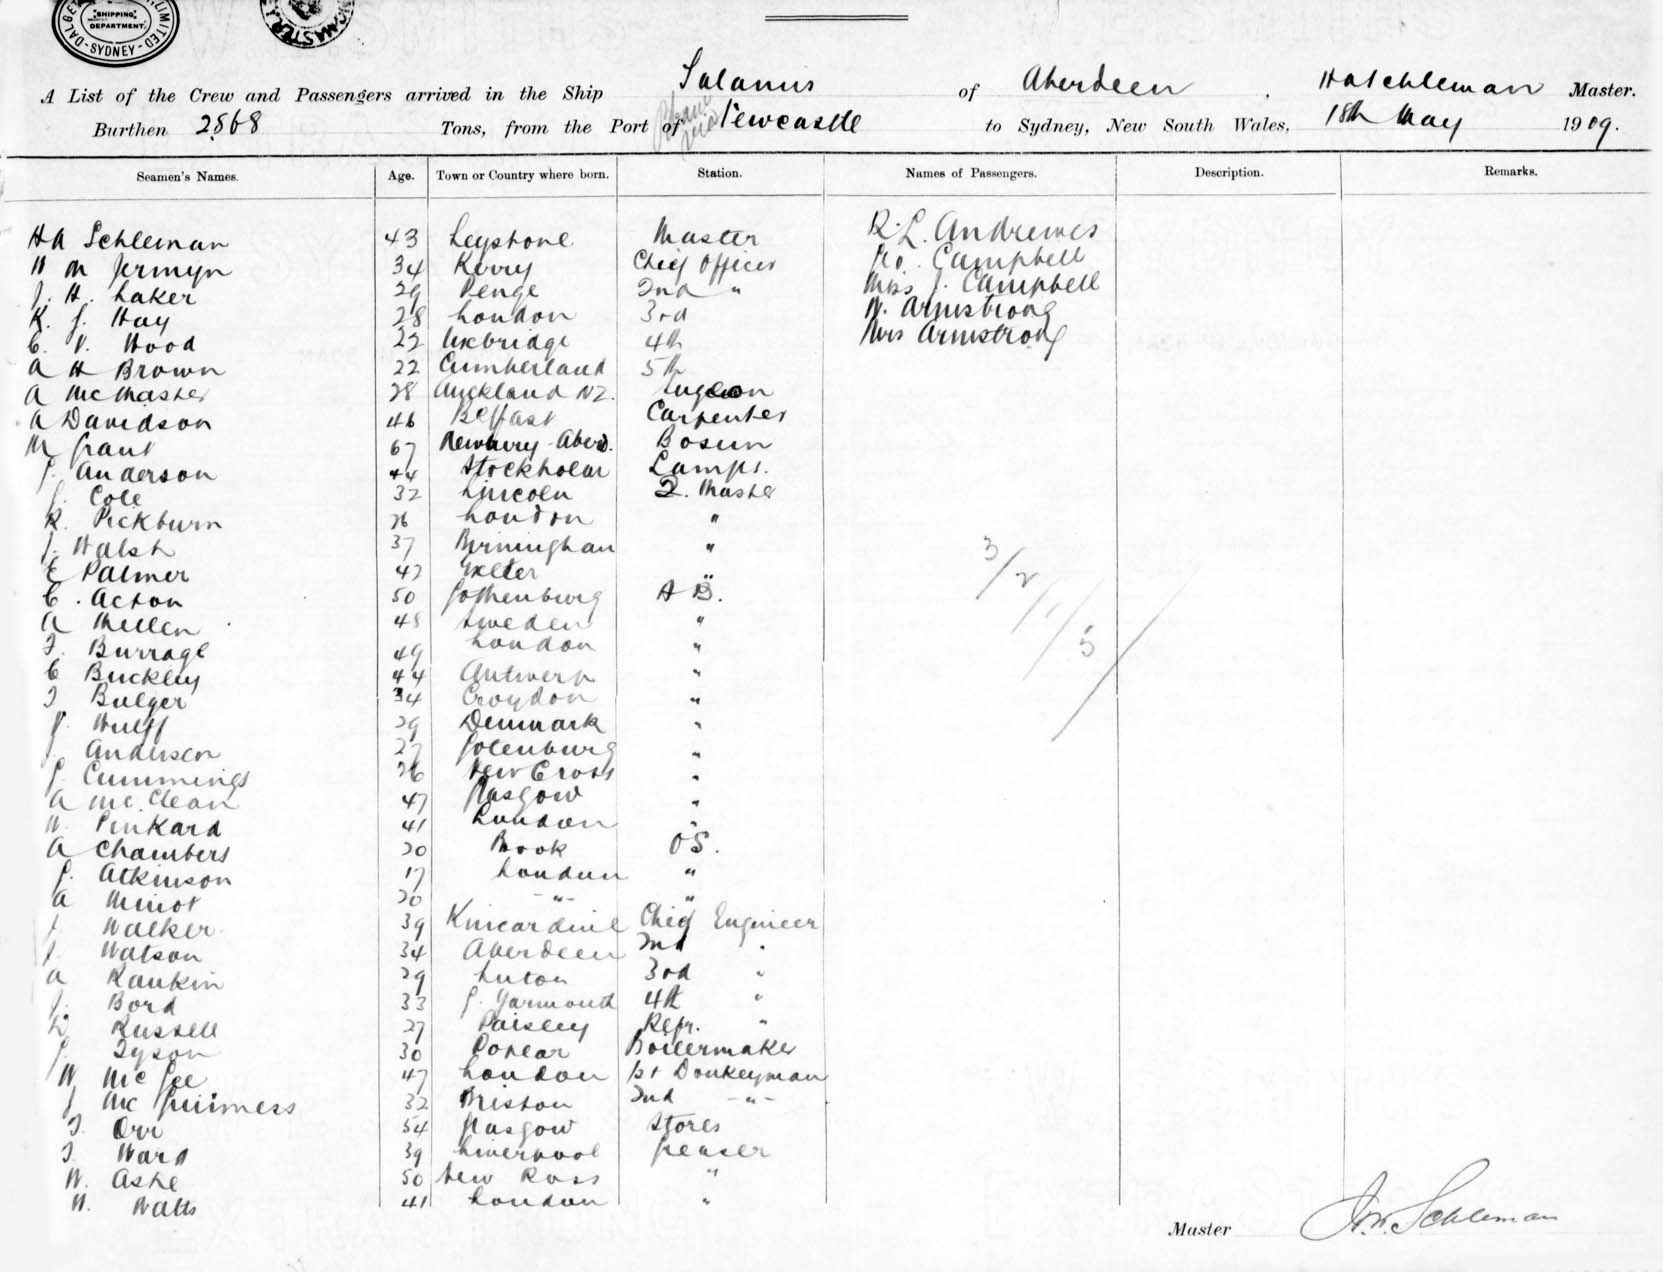 DALGETY LIMITED SHIPPING DEPARTMENT. SYDNEY
A List of the Crew and Passengers arrived in the Ship Salamis of Aberdeen. HA Schleman Master.
Burthen 2568 Tons, from the Port of Newcastle to Sydney, New South Wales, 18th May 1909.
Seamen's Names. Age. Town or Country where born. Station. Names of Passengers. Description. Remarks.
HA Schleman 43 Leystone Master R. L. Andrewes
H M Jermyn 34 Kerry Chief Officer Campbell
J. H. Laker 29 Penge 2nd " Miss J. Campbell
K. J. Hay 28 London 3rd W. Armstrong
C. V. Wood 22 Uxbridge 4th Mrs Armstrong
A H Brown 22 Cumberland 5th
A McMaster 28 Auckland NZ. Surgeon
A Davidson 46 Belfast Carpenter
M Grant 67 Newburry Aberd. Bosun
J. Anderson 44 Stockholm Lamps.
J. Cole 32 Lincoln Q. Master
R. Pickburn 26 London "
J. Walsh 37 Birmingham "
E Palmer 42 Exeter "
C. Acton 50 Gothenburg A B.
A Mellen 48 Sweden "
F. Burrage 49 London "
C Buckley 44 Antwerp "
T Bulger 34 Croydon "
P. Wulff 29 Denmark "
J. Andersen 27 Gotenburg "
J. Cummings 26 New Cross "
A Mc.Clean 47 Glasgow "
W. Pinkard 41 London "
A Chambers 20 Brook OS.
J. Atkinson 17 London "
A Minot 20 - " - "
J. Walker 39 Kincardine Chief Engineer
J. Watson 34 Aberdeen 2nd "
A Rankin 29 Luton 3rd "
J. Bord 33 G. Yarmouth 4th "
D. Russell 27 Paisley Refr. "
J. Tyson 30 Boilermaker
W McGee 47 London 1st Donkeyman
J McGuinness 32 Briston 2nd - " -
T. Orr 54 Glasgow Stores
T. Ward 39 Liverpool Greaser
W. Ashe 50 New Ross "
W. Watts 41 London "
3/2/1/5/
Master Schleman